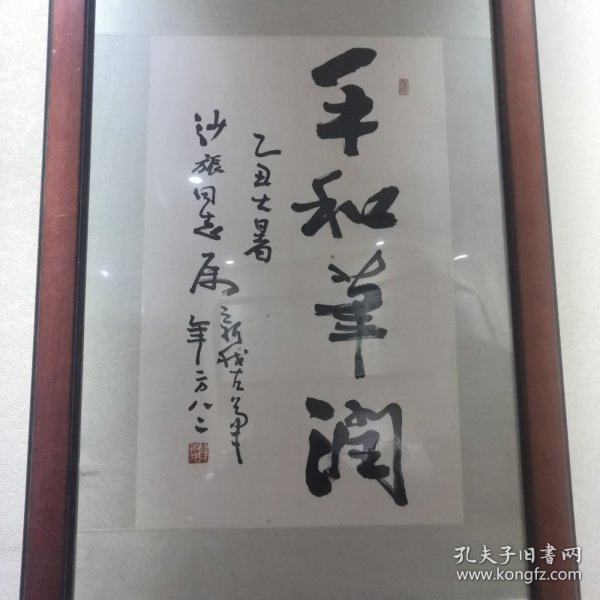 平和華润
乙丑大暑
沙旅同志属
新我左笔
年方八二
孔夫子旧書网
www.kongfz.com